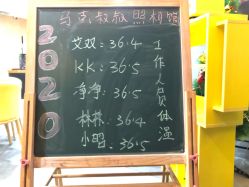 马克叔叔照相馆
2020
艾双：36.4
KK：36.5
净净：36.5
林林：36.4
小昭：36.5
工作人员体温